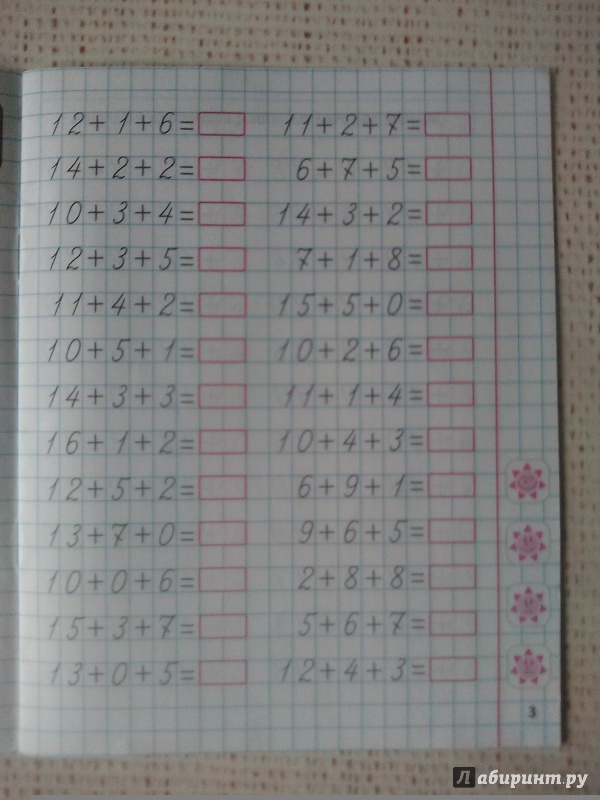 12+1+6= 11+2+7=
14+2+2= 6+7+5=
10+3+4= 14+3+2=
12+3+5= 7+1+8=
11+4+2= 15+5+0=
10+5+1= 10+2+6=
14+3+3= 11+1+4=
16+1+2= 10+4+3=
12+5+2= 6+9+1=
13+7+0= 9+6+5=
10+0+6= 2+8+8=
15+3+7= 5+6+7=
13+0+5= 12+4+3=
3
Лабиринт.ру